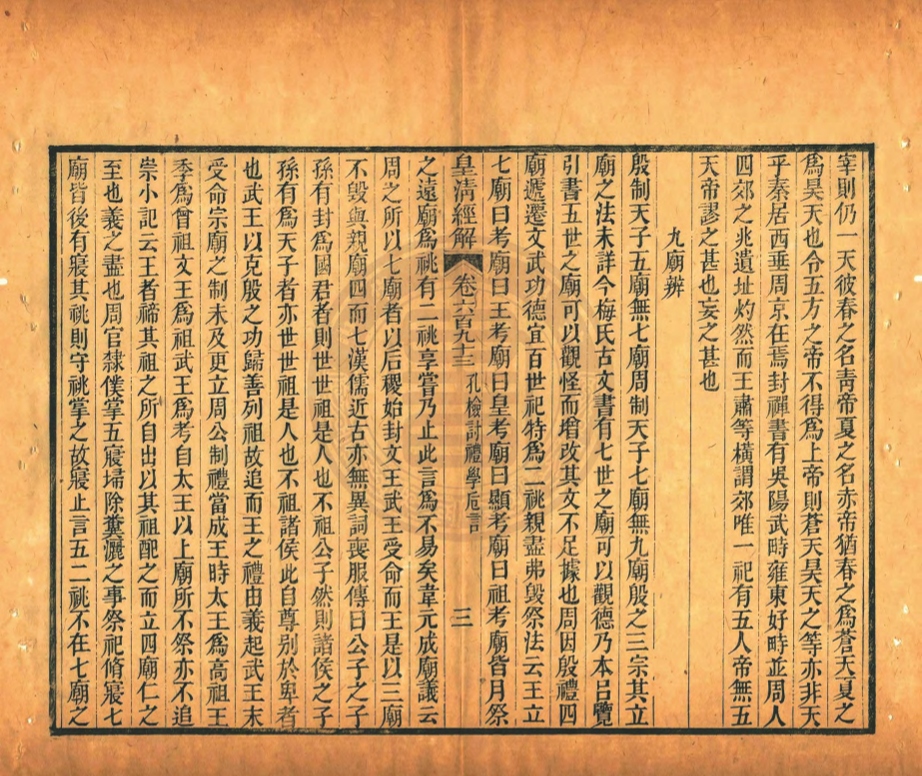 宰則仍一天彼春之名青帝夏之名赤帝猶春之爲蒼天夏之
爲昊天也令五方之帝不得爲上帝則蒼天昊天之等亦非天
乎秦居西垂周京在焉封禪書有吳陽武畤雍東好畤並周人
四郊之兆遺址灼然而王肅等橫謂郊唯一祀有五人帝無五
天帝謬之甚也妄之甚也
九廟辨
殷制天子五廟無七廟周制天子七廟無九廟殷之三宗其立
廟之法未詳今梅氏古文書有七世之廟可以觀德乃本呂覽
引書五世之廟可以觀怪而增改其文不足據也周因殷禮四
廟遞遷文武功德宜百世祀特爲二祧親盡弗毀祭法云王立
七廟曰考廟曰王考廟曰皇考廟曰顯考廟曰祖考廟皆月祭
皇清經解 卷六百九十三 孔檢討禮學卮言 三
之遠廟爲祧有二祧享嘗乃止此言爲不易矣韋元成廟議云
周之所以七廟者以后稷始封文王武王受命而王是以三廟
不毀與親廟四而七漢儒近古亦無異詞喪服傳曰公子之子
孫有封爲國君者則世世祖是人也不祖公子然則諸侯之子
孫有爲天子者亦世世祖是人也不祖諸侯此自尊別於卑者
也武王以克殷之功歸善列祖故追而王之禮由義起武王末
受命宗廟之制未及更立周公制禮當成王時太王爲高祖王
季爲曾祖文王爲祖武王爲考自太王以上廟所不祭亦不追
崇小記云王者禘其祖之所自出以其祖配之而立四廟仁之
至也義之盡也周官隸僕掌五寢埽除糞灑之事祭祀脩寢七
廟皆後有寢其祧則守祧掌之故寢止言五二祧不在七廟之